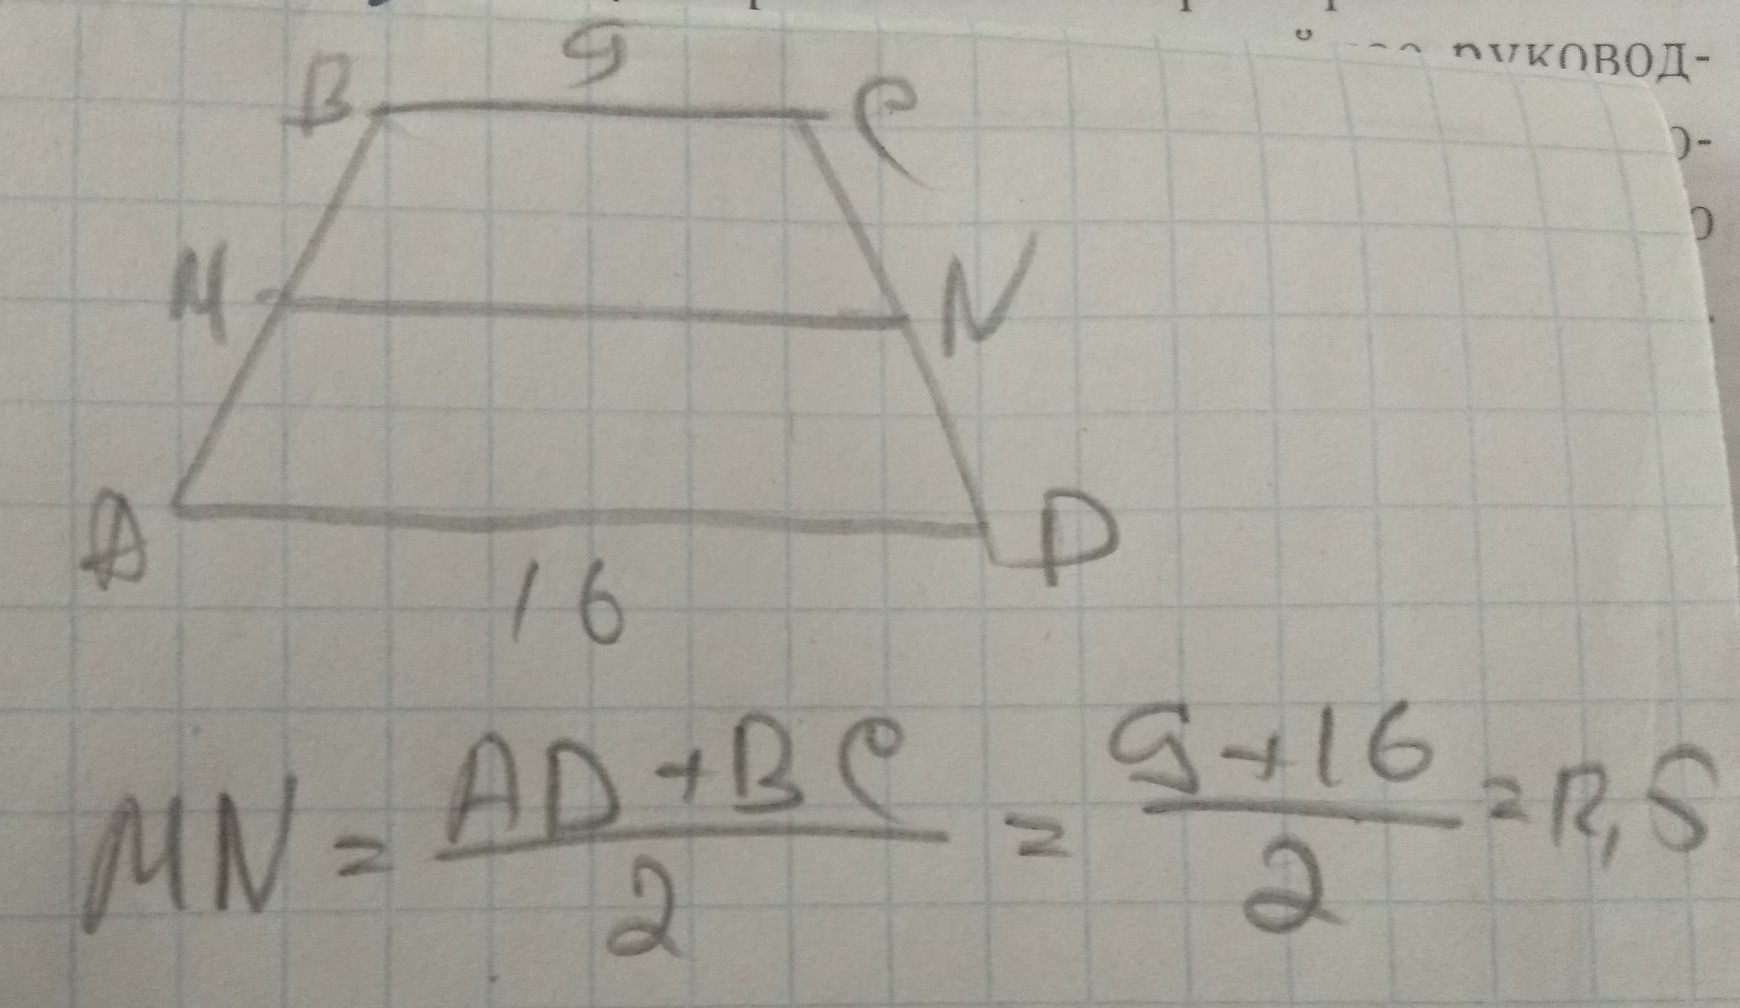 руковод-
9
B C
M N
A D
16
MN = \frac{AD+BC}{2} = \frac{9+16}{2} = 12,5